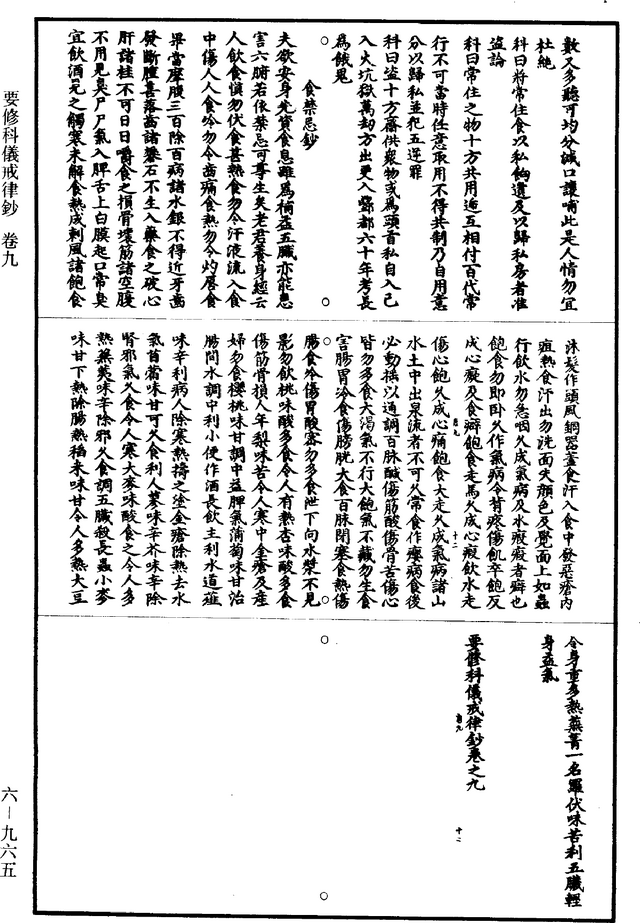 數又多聽可均分緘口讓哺此是人情勿宜
杜絶
科曰將常住食以私餉遺及以歸私房者准
盜論
科曰常住之物十方共用遞互相付百代常
行不可當時任意取用不得共制乃自用意
分以歸私並犯五逆罪
科曰盜十方齋供衆物或爲頭首私自入己
入火坑獄萬劫方出更入酆都六十年考長
爲餓鬼
食禁忌鈔
夫欲安身先資食息雖爲補益五臟亦能患
害六腑若依禁忌可尊生矣老君養身經云
人飲食慎勿伏食喜熱食勿令汗液流入食
中傷人人食冷勿令齒痛食熱勿令灼唇食
畢當摩腹三百除百病諸水銀不得近牙齒
發斷腫喜落齒諸礬石不生入藥食之破心
肝諸桂不可日日嚼食之損骨壞筋諸空腹
不用見臭尸尸氣入脾舌上白膜起口常臭
宜飲酒見之觸寒未解食熱成刺風諸飽食
沐髮作頭風銅器蓋食汗入食中發惡瘡內
疽熱食汗出勿洗面失顏色及覺面上如蟲
行飲水勿急咽久成氣病及水瘕瘕者癖也
飽食勿即卧久作氣病令背疼傷飢卒飽反
成心瘕及食癖飽食走馬久成心瘕飲水走
傷心飽久成心痛飽食大走久成氣病諸山
水土中出泉流者不可久常食作癭病食後
必動搖以通調百脉鹹傷筋酸傷骨苦傷心
皆勿多食大渴氣不行大飽氣不藏勿生食
害腸胃冷食傷膀胱大食百脉閉寒食熱傷
腸食冷傷胃酸寒勿多食泄下向水榮不見
影勿飲桃味酸多食令人有熱杏味酸多食
傷筋骨損人年梨味苦令人寒中金瘡及産
婦勿食櫻桃味甘調中益脾氣蒲萄味甘治
腸間水調中利小便作酒長飲主利水道薤
味辛利病人除寒熱擣之塗金瘡除熱去水
氣苜蓿味甘可久食利人蓼味辛芥味辛除
腎邪氣久食令人寒大麥味酸食之令人多
熱蕪荑味辛除邪久食調五臟殺長蟲小麥
味甘下熱除腸熱稻米味甘令人多熱大豆
令身重多熱蕪菁一名羅伏味苦利五臟輕
身益氣
要修科儀戒律鈔卷之九
要修科儀戒律鈔 卷九
六—九六五